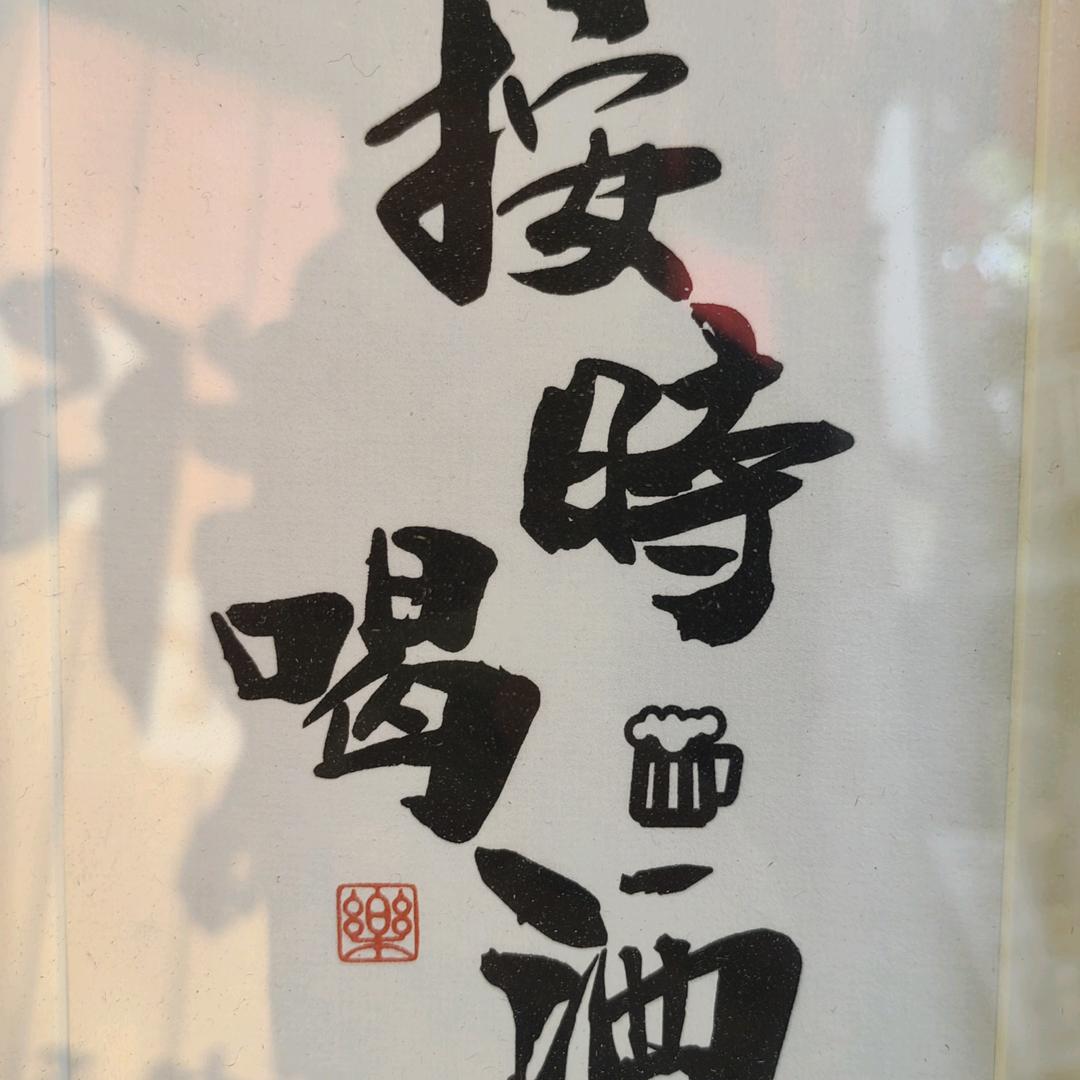 按時喝酒
樂